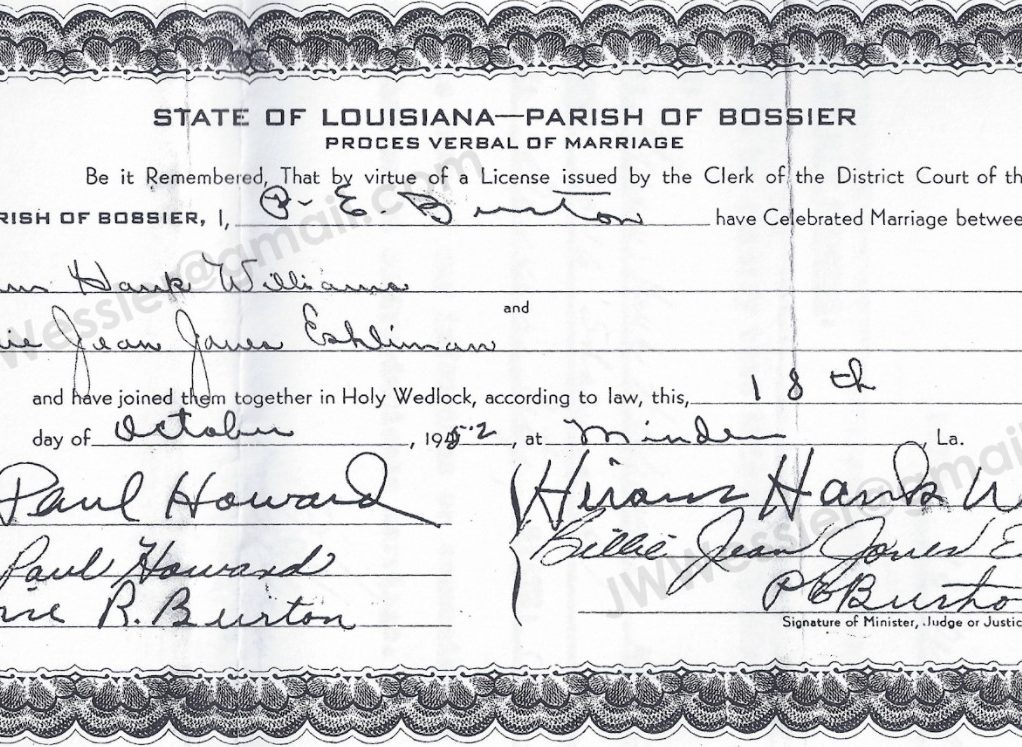 STATE OF LOUISIANA—PARISH OF BOSSIER
PROCES VERBAL OF MARRIAGE
Be it Remembered, That by virtue of a License issued by the Clerk of the District Court of th
RISH OF BOSSIER, I, P. E. Burton have Celebrated Marriage betwee
m Hank Williams
and
ie Jean Jones Eshliman
and have joined them together in Holy Wedlock, according to law, this, 18th
day of October, 1952, at Minden, La.
Paul Howard
Hiram Hank W
Paul Howard
Billie Jean Jones E
R. Burton
P E Burto
Signature of Minister, Judge or Justic
JWWessler@gmail.com
JWWessler@gmail